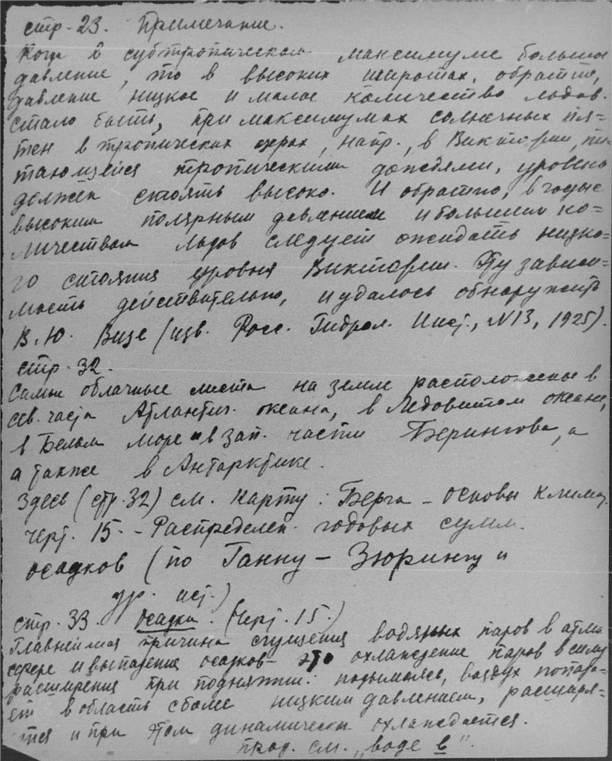 стр. 23. Примечание.
Когда в субтропическом максимуме большое
давление, то в высоких широтах, обратно,
давление низкое и малое количество льдов.
стало быть, при максимумах солнечных пя-
тен в тропических озерах, напр., в Виктории, пи-
тающейся тропическими дождями, уровень
должен стоять высоко. И обратно, в годы с
высоким полярным давлением и большим ко-
личеством льдов следует ожидать низко-
го стояния уровня Виктории. Эту зависи-
мость действительно, и удалось обнаружить
В. Ю. Визе (изв. Росс. Гидрол. Инст., N13, 1925).
стр. 32.
Самые облачные места на земле расположены в
сев. части Атлантич. океана, в Ледовитом океане,
в Белом море и в зап. части Берингова, а
а также в Антарктике.
Здесь (стр. 32) см. карту: Берга - основы климат.
черт. 15. - Распределен. годовых сумм
осадков (по Ганну - Зюрингу и
др. ист.)
стр. 33 Осадки. (Черт. 15.)
Главнейшая причина сгущения водяных паров в атмо
сфере и выпадения осадков - это охлаждение паров в силу
расширения при поднятии: подымаясь, воздух попада-
ет в область с более низким давлением, расширя-
ется и при этом динамически охлаждается.
прод. см. „воде в".